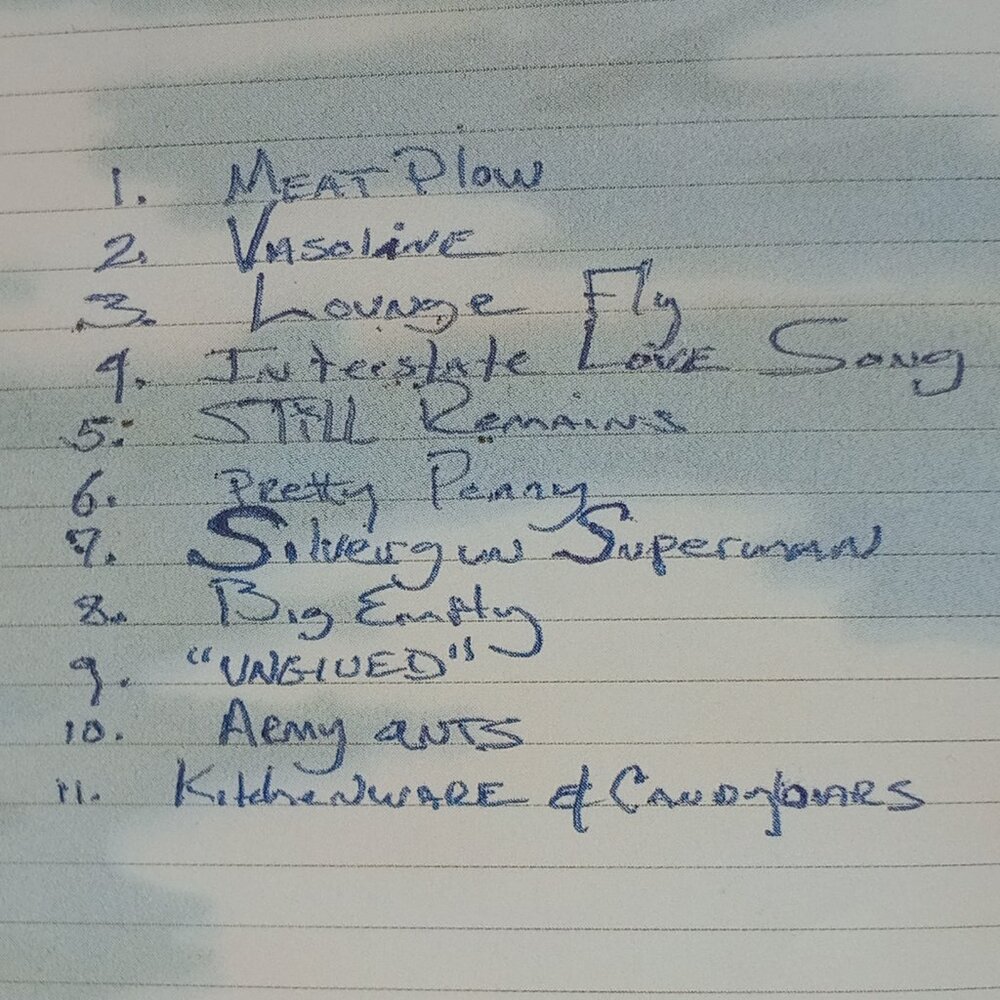 1. MEAT Plow
2. Vasoline
3. Lounge Fly
4. Interstate Love Song
5. STill Remains
6. Pretty Penny
7. Silvergun Superman
8. Big Empty
9. "UNGlUED"
10. Army ANTS
11. KitchenWARE & CANDYbARS